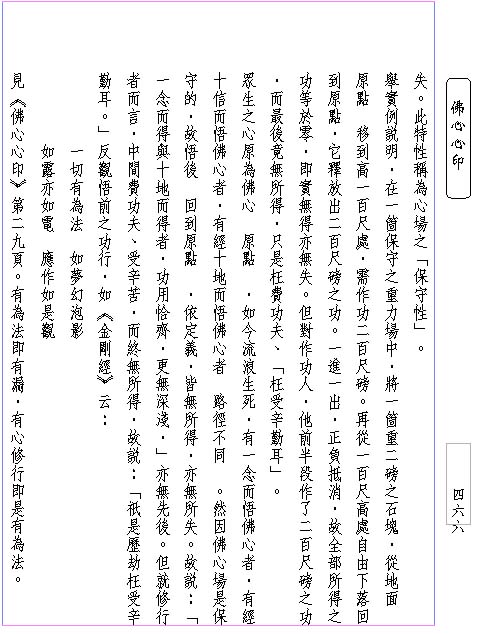 佛心心印
四六六
失。此特性稱為心場之「保守性」。
舉實例說明，在一個保守之重力場中，將一個重二磅之石塊，從地面
原點　移到高一百尺處，需作功二百尺磅。再從一百尺高處自由下落回
到原點，它釋放出二百尺磅之功。一進一出，正負抵消，故全部所得之
功等於零，即實無得亦無失。但對作功人，他前半段作了二百尺磅之功
，而最後竟無所得，只是枉費功夫、「枉受辛勤耳」。
眾生之心原為佛心　原點　，如今流浪生死，有一念而悟佛心者，有經
十信而悟佛心者，有經十地而悟佛心者　路徑不同　。然因佛心場是保
守的，故悟後　回到原點　，依定義，皆無所得，亦無所失。故說：「
一念而得與十地而得者，功用恰齊，更無深淺，」亦無先後。但就修行
者而言，中間費功夫、受辛苦，而終無所得，故說：「祇是歷劫枉受辛
勤耳。」反觀悟前之功行，如《金剛經》云：
一切有為法　如夢幻泡影
如露亦如電　應作如是觀
見《佛心心印》第二九頁。有為法即有漏，有心修行即是有為法。